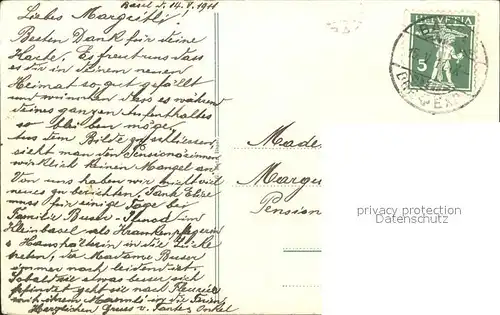 Basel d. 14. V. 1911
Liebes Margritli!
Besten Dank für deine
Karte. Es freut uns dass
es dir in deinem neuen
Heimat so gut gefällt
und wünschen dass es während
deines ganzen Aufenthaltes
so bleiben möge.
Aus dem Bilde zu schliessen
sieht man den Pensionärinnen
wirklich keinen Mangel an
Von uns haben wir nicht viel
neues zu berichten. Tante Elise
muss für einige Tage bei
Familie Buser- im
Kleinbasel als Krankenpflegerin
& Haushälterin in die Lücke
treten, da Madame Buser
immer noch leidend ist.
Sobald sie etwas besser sich
befindet geht sie nach Fleurier
mit ihrem Mannli in die Ferien
Herzlichen Gruss v. Tante & Onkel
HELVETIA
5
Made
Margu
Pension
privacy protection
Datenschutz